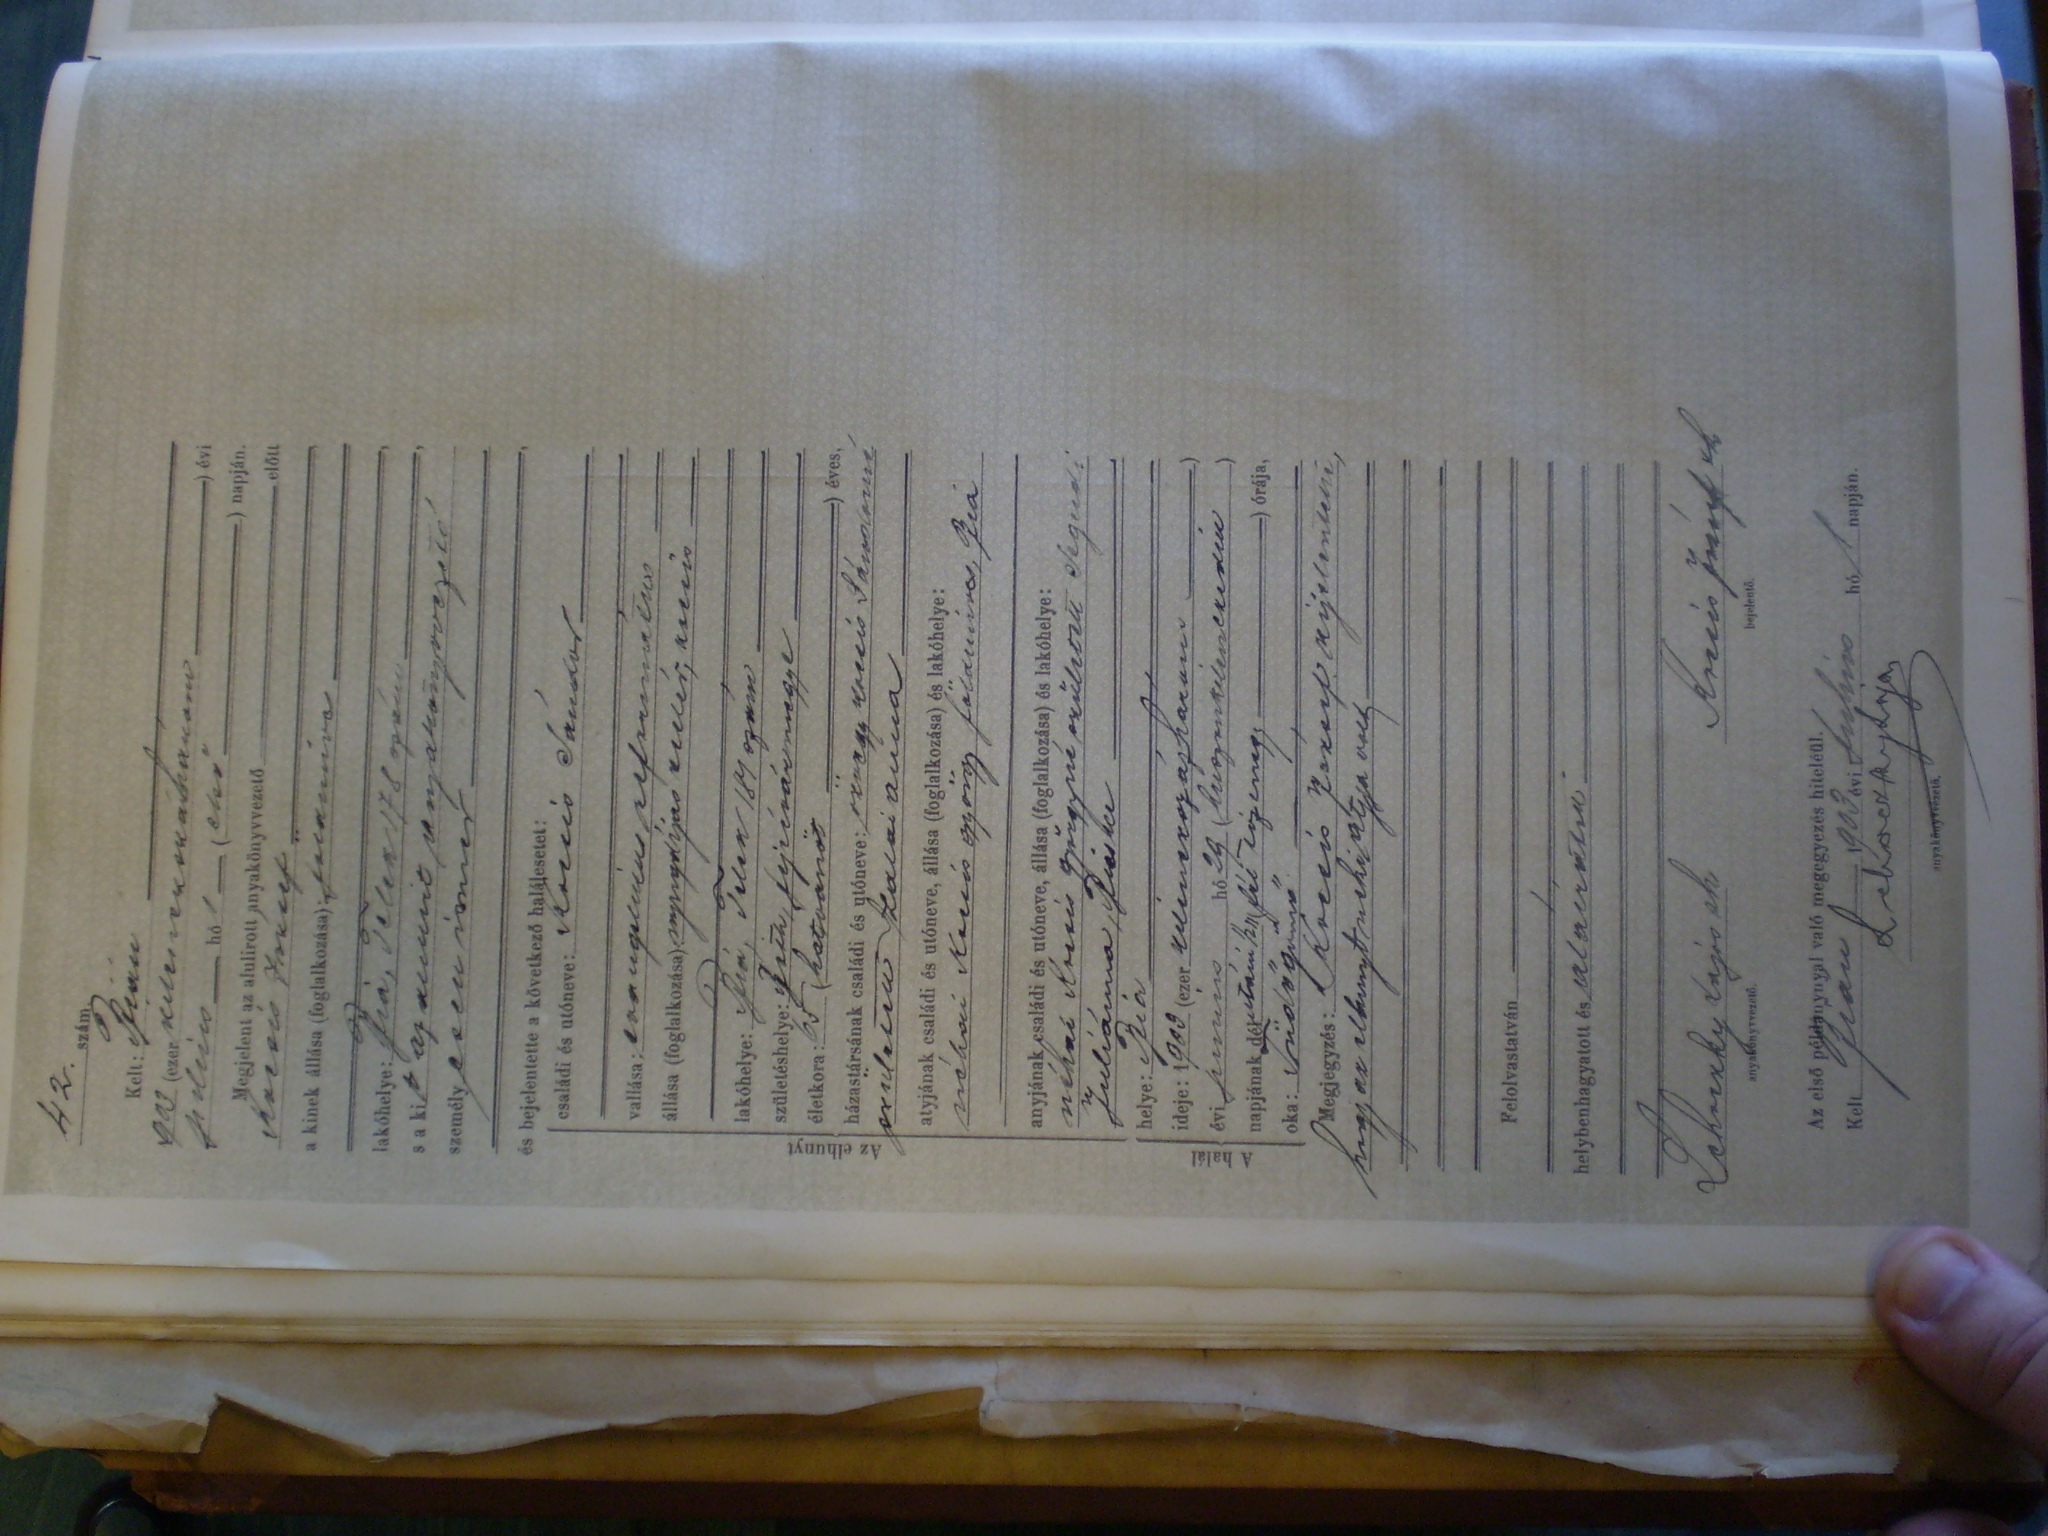 42. szám.
Kelt: Bián
903 (ezer kilenczszázhárom) évi
julius hó 1 (első) napján.
Megjelent az alulirott anyakönyvvezető előtt
Kocsis József
a kinek állása (foglalkozása): földmives
lakóhelye: Bia, Telek 178 szám,
s a ki az említett anyakönyvvezető
személyesen ismer,
és bejelentette a következő halálesetet:
Az elhunyt
családi és utóneve: Kocsis Sándor
vallása: evangelmius reformátius
állása (foglalkozása):
lakóhelye: Bia, Telek 189 szám
születéshelye: Bia, fejérvármegye
életkora: 65 (hatvanöt) éves,
házastársának családi és utóneve: özvegy Kocsis Sándorné
született Szalai anna
atyjának családi és utóneve, állása (foglalkozása) és lakóhelye:
néhai Kocsis György földmives, Bia
anyjának családi és utóneve, állása (foglalkozása) és lakóhelye:
néhai Kocsis Györgyné született
juliánna,
A halál
helye: Bia
ideje: 1903 (ezer kilenczszázhárom)
évi junius hó 29 (huszonkilenczedik)
napjának dél utáni fél tizenegy) órája,
oka: tüdőgümő
Megjegyzés: Kocsis József kijelenteni,
hogy az elhunytnak atyja volt
Felolvastatván
helybenhagyatott és aláiratott.
Lajos sk
anyakönyvvezető.
Kocsis József sk
bejelentő.
Az első példánynyal való megegyezés hiteléül.
Kelt Bián 1903 évi Julius hó 1 napján.
anyakönyvvezető.